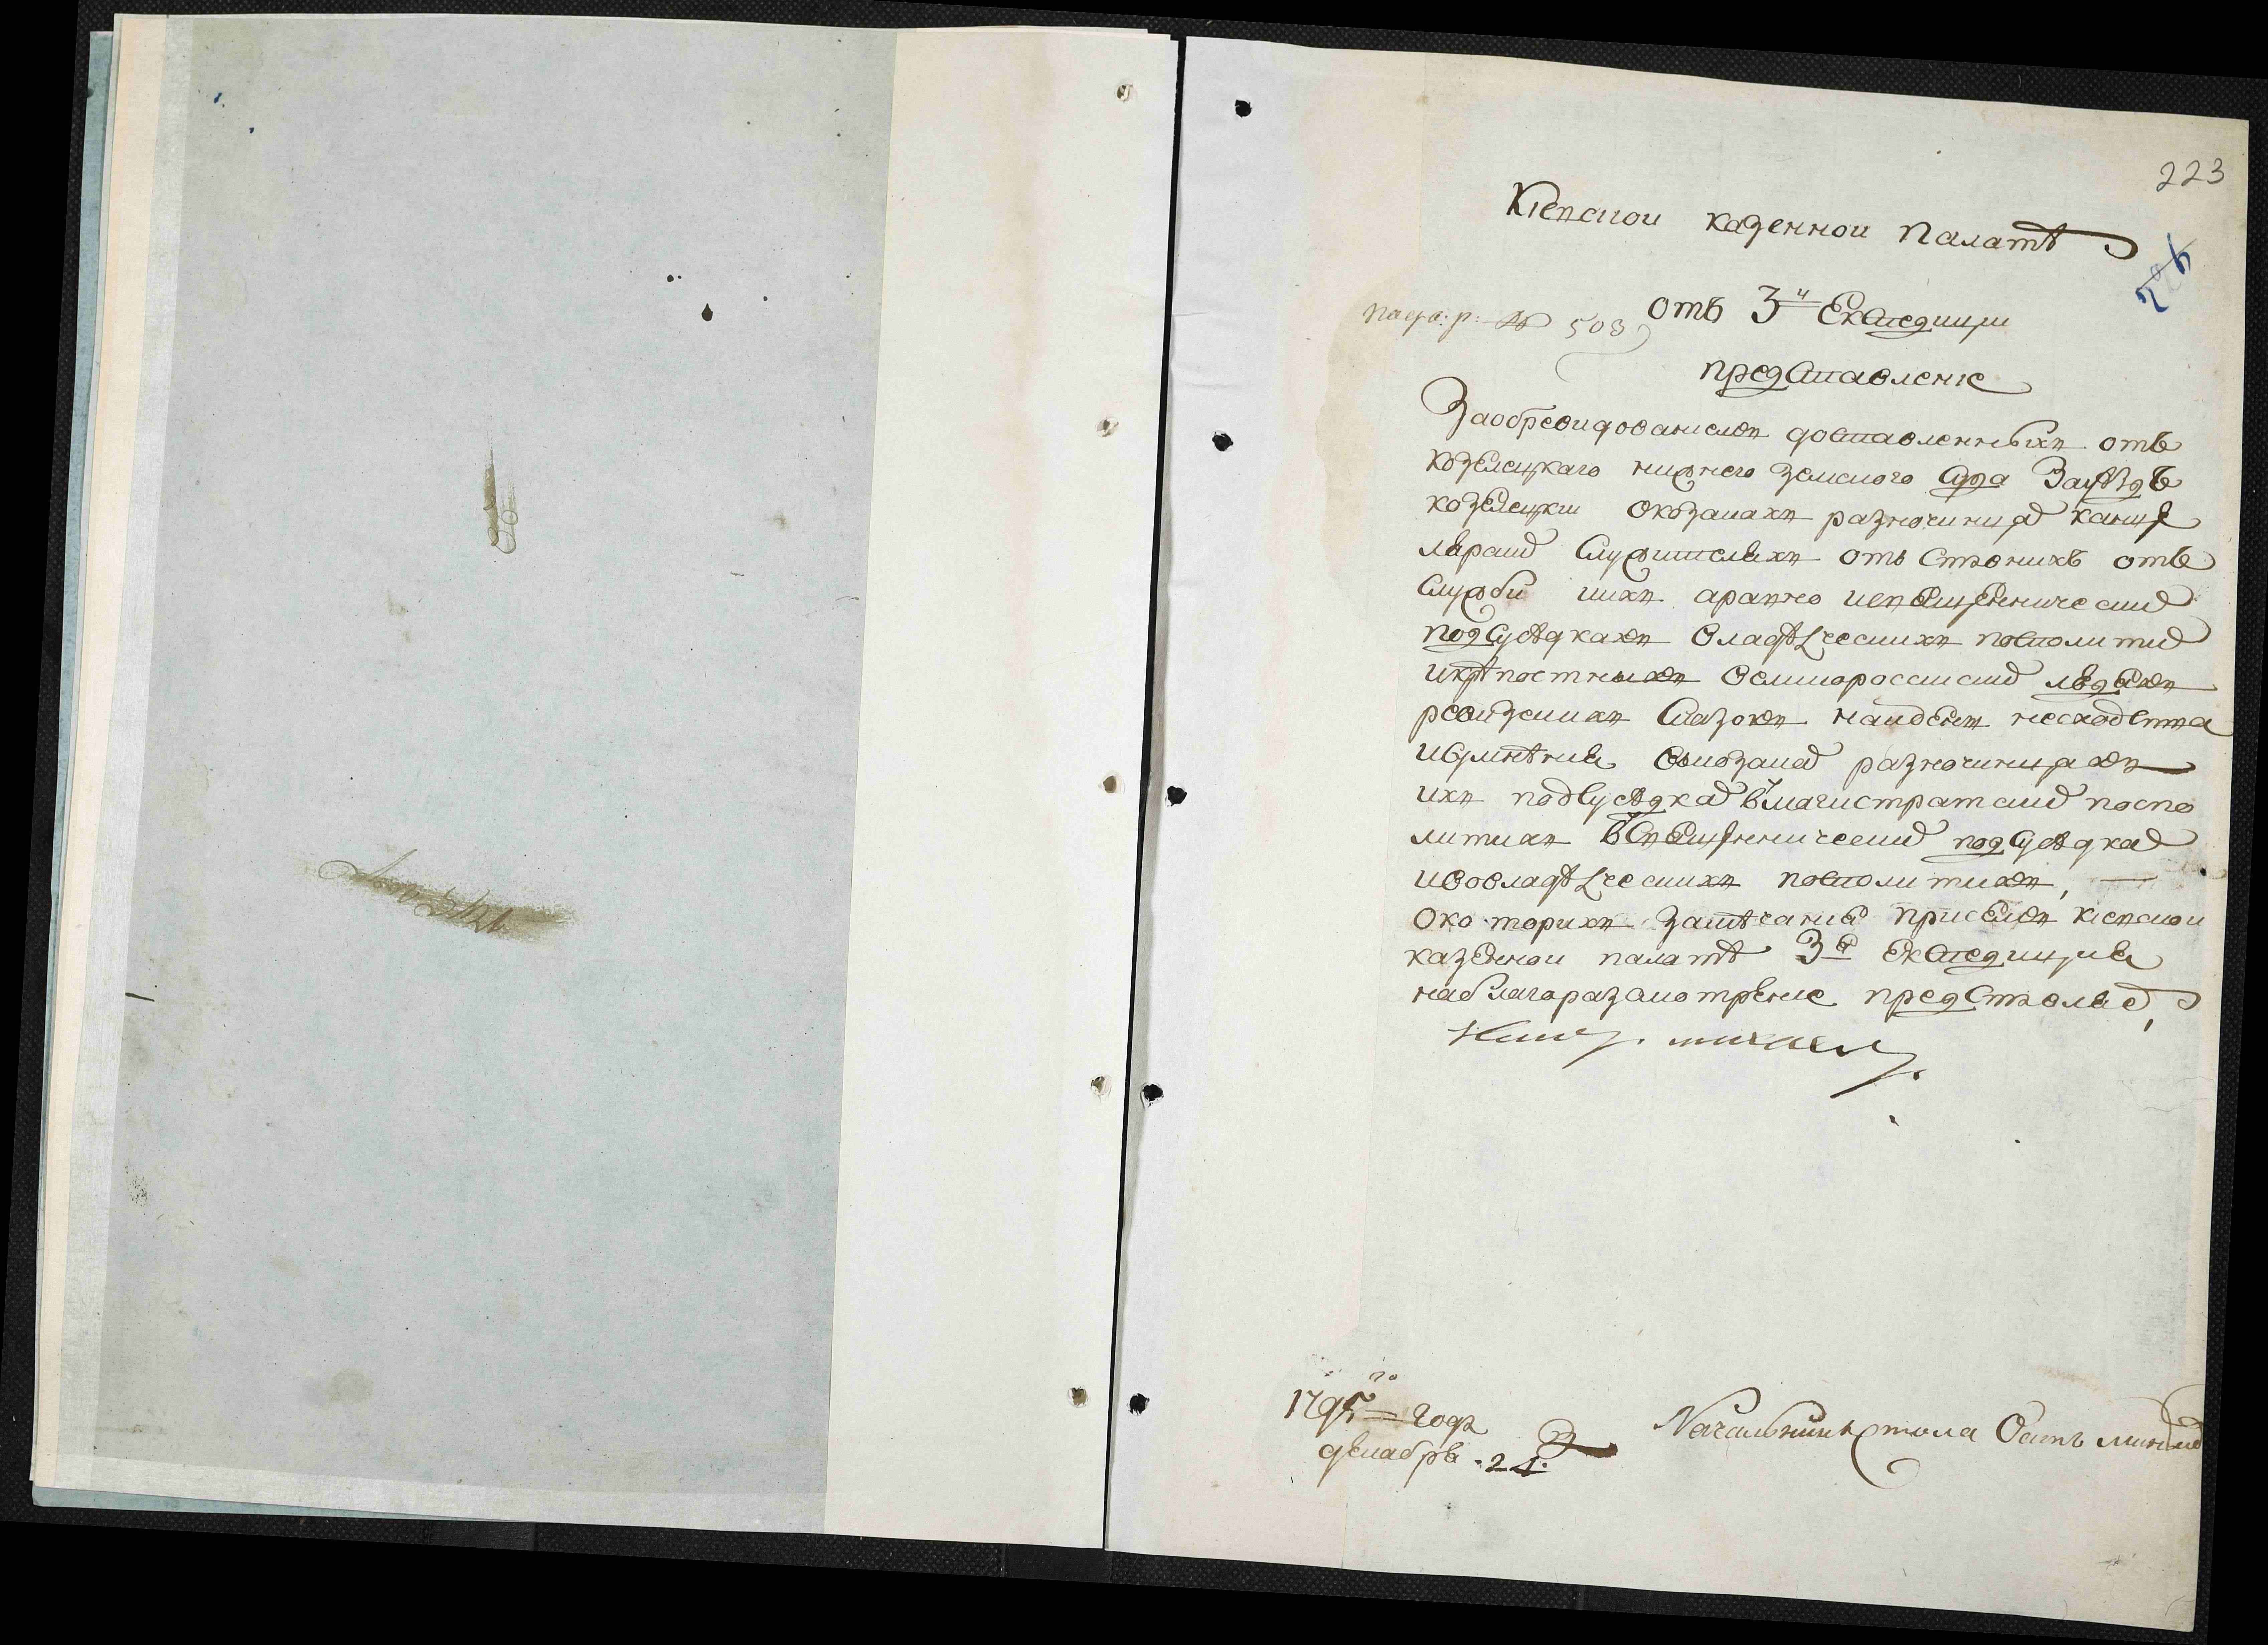 223
Киевской казенной палатѣ
отъ 3й Експедиции
№ 503
представление
За обревидованиемъ доставленныхъ отъ
козелецкаго нижнего земского суда За уѣздъ
козелецкий о казацкихъ разночинцахъ канце
лярскихъ служителяхъ отставнихъ отъ
служби и священническихъ
подсусѣдкахъ владѣлческихъ посполитихъ
и крѣпостныхъ великороссийскихъ людяхъ
ревизскихъ сказокъ найдени несходства
и сумнѣния в казацкихъ разночинцахъ
ихъ подсусѣдкахъ в магистратскихъ поспо
литихъ в священническихъ подсусѣдкахъ
и во владѣлческихъ посполитихъ,
о которихъ замѣчания при семъ киевской
казенной палатѣ 3я Експедиция
на благоразсмотрение представляетъ,
1795го года
декабря 21.
Началникъ стола